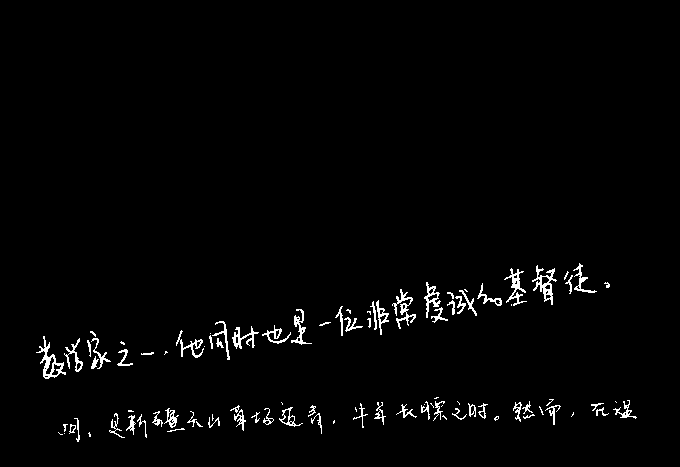 数学家之一,他同时也是一位非常虔诚的基督徒。
间,是新疆天山草场返青,牛羊长膘之时。然而,在温